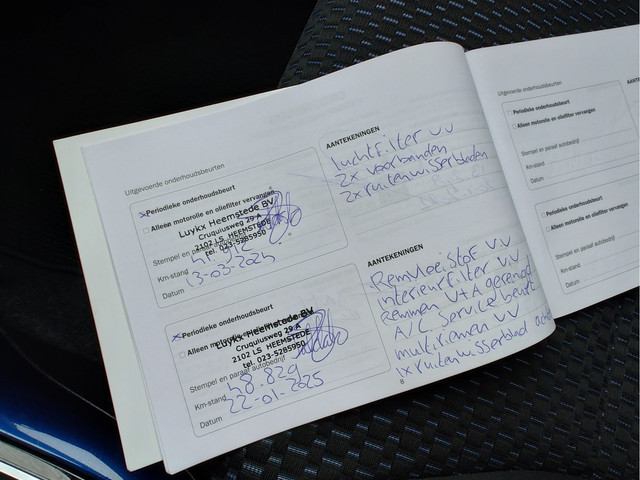 Uitgevoerde onderhoudsbeurten
Periodieke onderhoudsbeurt
Alleen motorolie en oliefilter vervangen
Luykx Heemstede BV
Cruquiusweg 29 A
2102 LS HEEMSTEDE
tel. 023-5285950
Stempel en paraaf autobedrijf
Km-stand
Datum 13-03-2024
AANTEKENINGEN
luchtfilter vv
2x voorbanden
2x ruitenwisserbladen
Periodieke onderhoudsbeurt
Alleen
Luykx Heemstede BV
Cruquiusweg 29 A
2102 LS HEEMSTEDE
tel. 023-5285950
Stempel en paraaf autobedrijf
Km-stand 48.829
Datum 22-01-2025
AANTEKENINGEN
Remvloeistof vv
interieurfilter vv
Remmen V+A gerenod.
A/C Servicebeurt
multiriemen vv
1x ruitenwisserblad
8
Uitgevoerde onderhoudsbeurten
Periodieke onderhoudsbeurt
Alleen motorolie en oliefilter vervangen
Stempel en paraaf autobedrijf
Km-stand
Datum
Periodieke onderhoudsbeurt
Alleen motorolie en oliefilter vervangen
Stempel en paraaf autobedrijf
Km-stand
Datum